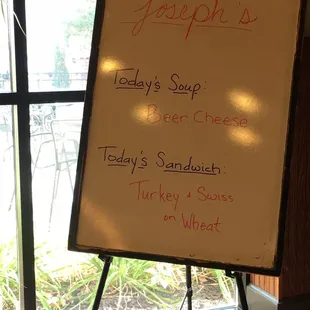 Joseph's
Today's Soup:
Beer Cheese
Today's Sandwich:
Turkey & Swiss
on Wheat